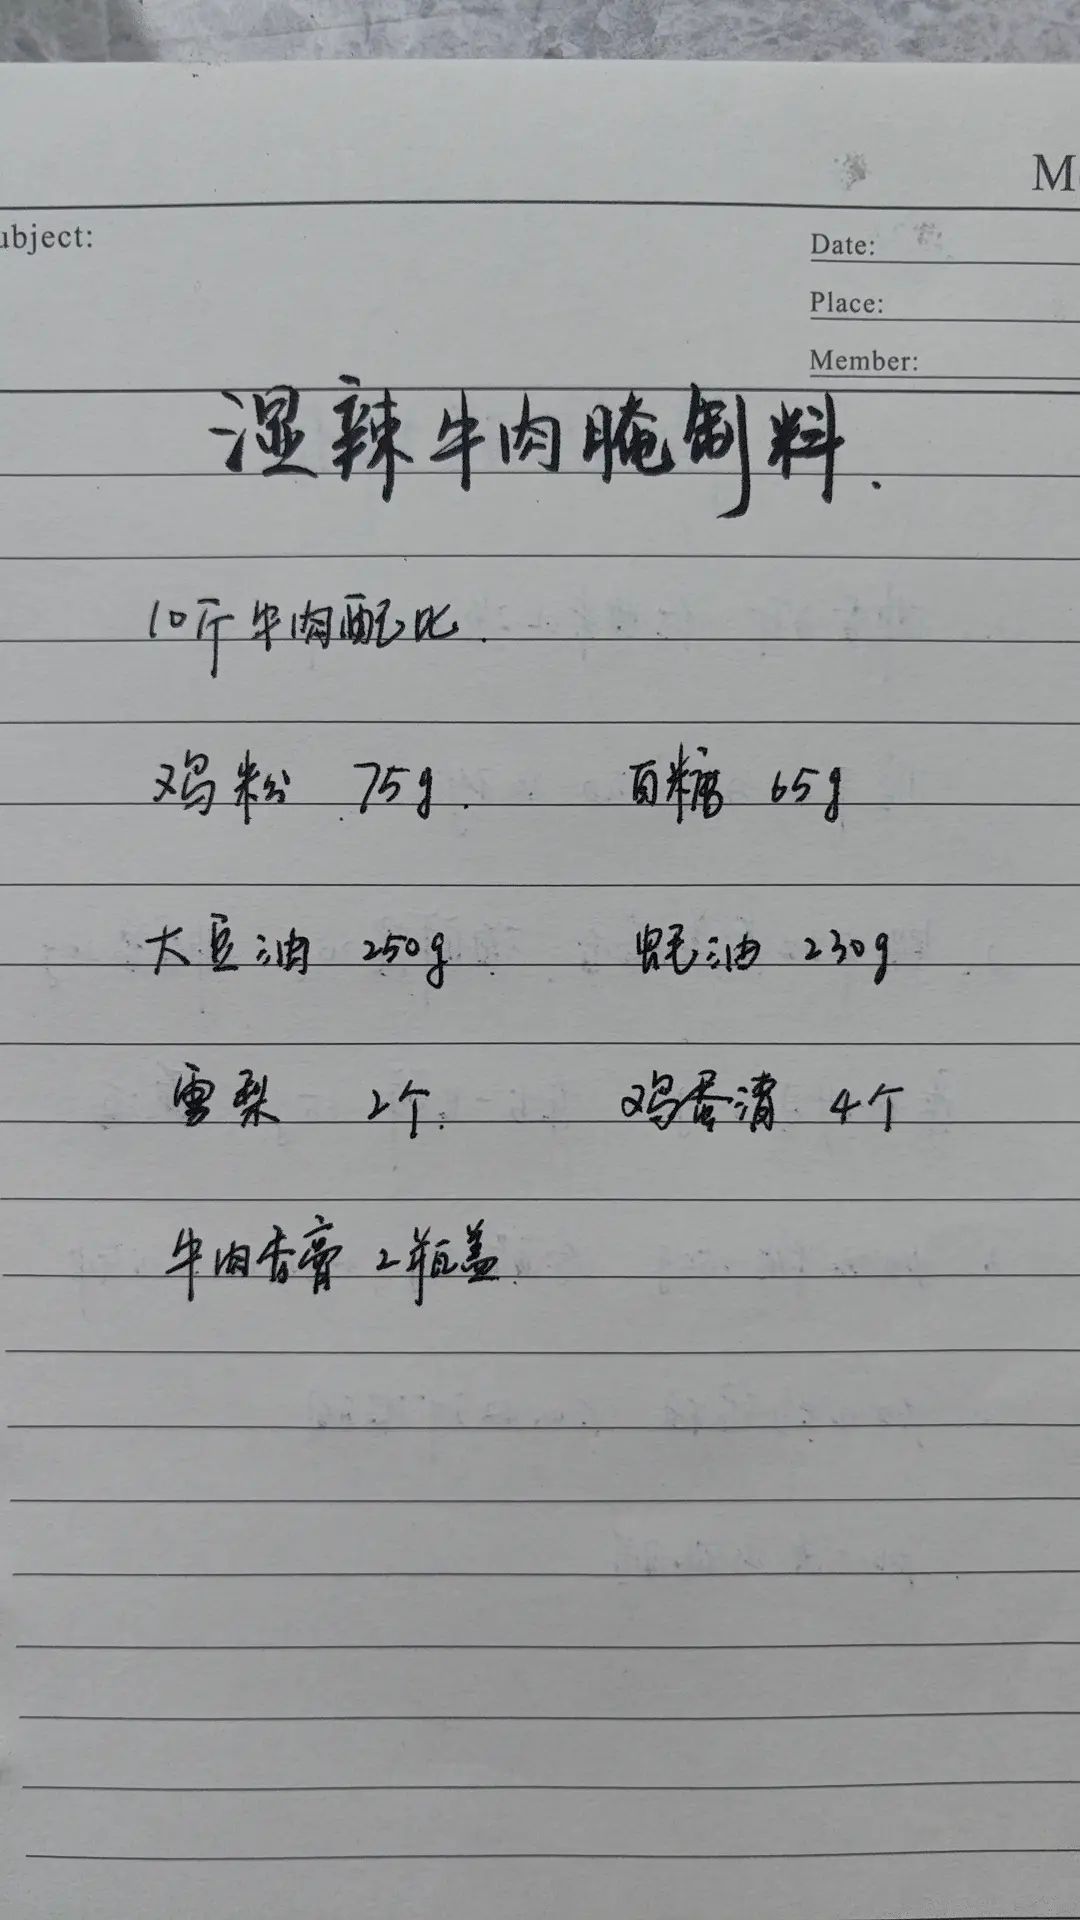 M
ubject:
Date:
Place:
Member:
湿辣牛肉腌制料.
10斤牛肉配比.
鸡粉 75g. 白糖 65g
大豆油 250g. 蚝油 230g
雪梨 2个. 鸡蛋清 4个
牛肉香膏 2瓶盖.